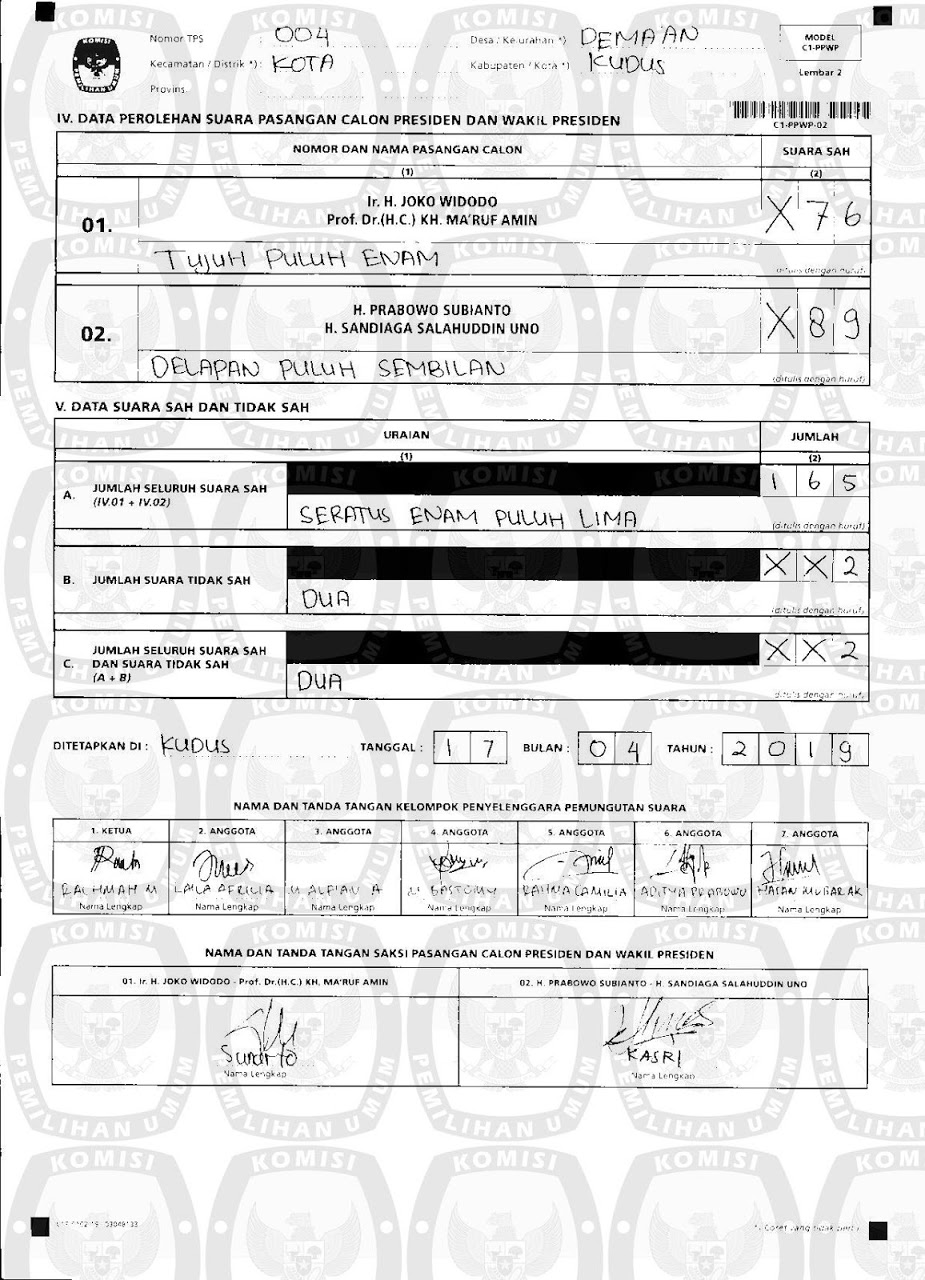 Nomor TPS : 004
Desa / Kelurahan *) DEMA'AN
Kecamatan / Distrik *) : KOTA
Kabupaten / Kota *) KUDUS
Provinsi
MODEL
C1-PPWP
Lembar 2
C1-PPWP-02
IV. DATA PEROLEHAN SUARA PASANGAN CALON PRESIDEN DAN WAKIL PRESIDEN
NOMOR DAN NAMA PASANGAN CALON SUARA SAH
(1) (2)
01. Ir. H. JOKO WIDODO
Prof. Dr.(H.C.) KH. MA'RUF AMIN
X 7 6
TUJUH PULUH ENAM
(ditulis dengan huruf)
02. H. PRABOWO SUBIANTO
H. SANDIAGA SALAHUDDIN UNO
X 8 9
DELAPAN PULUH SEMBILAN
(ditulis dengan huruf)
V. DATA SUARA SAH DAN TIDAK SAH
URAIAN JUMLAH
(1) (2)
A. JUMLAH SELURUH SUARA SAH
(IV.01 + IV.02)
1 6 5
SERATUS ENAM PULUH LIMA
(ditulis dengan huruf)
B. JUMLAH SUARA TIDAK SAH
X X 2
DUA
(ditulis dengan huruf)
C. JUMLAH SELURUH SUARA SAH
DAN SUARA TIDAK SAH
(A + B)
X X 2
DUA
(ditulis dengan huruf)
DITETAPKAN DI : KUDUS TANGGAL : 1 7 BULAN : 0 4 TAHUN : 2 0 1 9
NAMA DAN TANDA TANGAN KELOMPOK PENYELENGGARA PEMUNGUTAN SUARA
1. KETUA 2. ANGGOTA 3. ANGGOTA 4. ANGGOTA 5. ANGGOTA 6. ANGGOTA 7. ANGGOTA
RACHMAH M LAILA AFRILIA M ALFIAN A M BASTOMY RAHNA CAMILIA ADITYA PRABOWO HASAN MUBARAK
Nama Lengkap Nama Lengkap Nama Lengkap Nama Lengkap Nama Lengkap Nama Lengkap Nama Lengkap
NAMA DAN TANDA TANGAN SAKSI PASANGAN CALON PRESIDEN DAN WAKIL PRESIDEN
01. Ir. H. JOKO WIDODO - Prof. Dr.(H.C.) KH. MA'RUF AMIN 02. H. PRABOWO SUBIANTO - H. SANDIAGA SALAHUDDIN UNO
Sunarto KASRI
Nama Lengkap Nama Lengkap
*) Coret yang tidak perlu